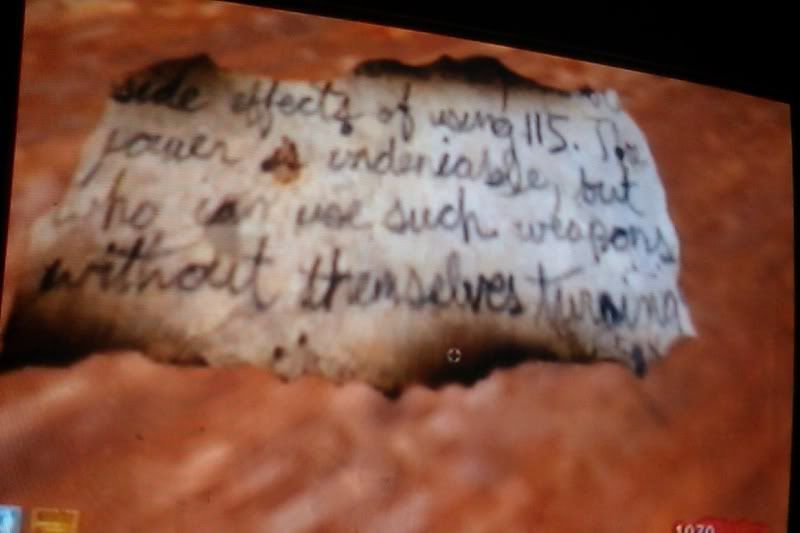 side effects of using 115. The
power is undeniable, but
who can use such weapons
without themselves turning
1070